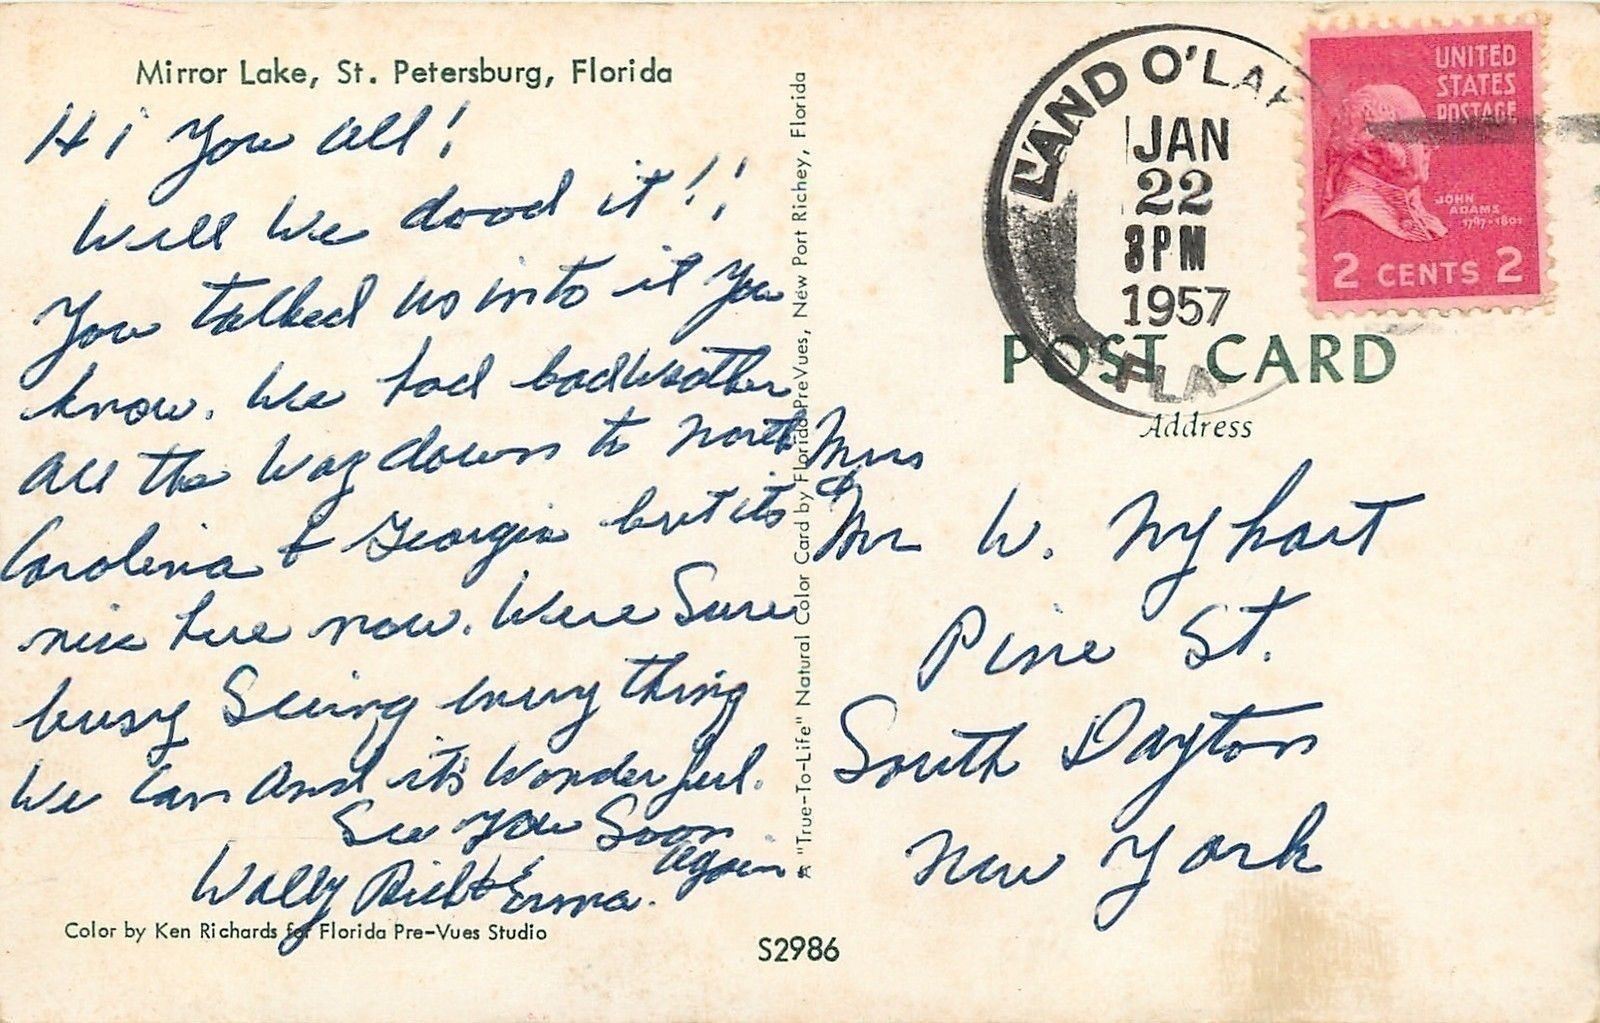 Mirror Lake, St. Petersburg, Florida
Hi You all!
Well We dood it!!
You talked us into it You
know. We had bad Weather
all the Way down to North
Carolina & Georgia but its
nice here now. Were Sure
busy Seeing every thing
We Can And it's Wonderful.
See You Soon
again.
Wally Rich & Erma.
Color by Ken Richards for Florida Pre-Vues Studio
"True-To-Life" Natural Color Card by Florida PreVues, New Port Richey, Florida
S2986
LAND O'LAK
JAN
22
3 PM
1957
FLA
UNITED
STATES
POSTAGE
JOHN
ADAMS
1797-1801
2 CENTS 2
POST CARD
Address
Mrs
&
Mr W. Nyhart
Pine St.
South Dayton
New York